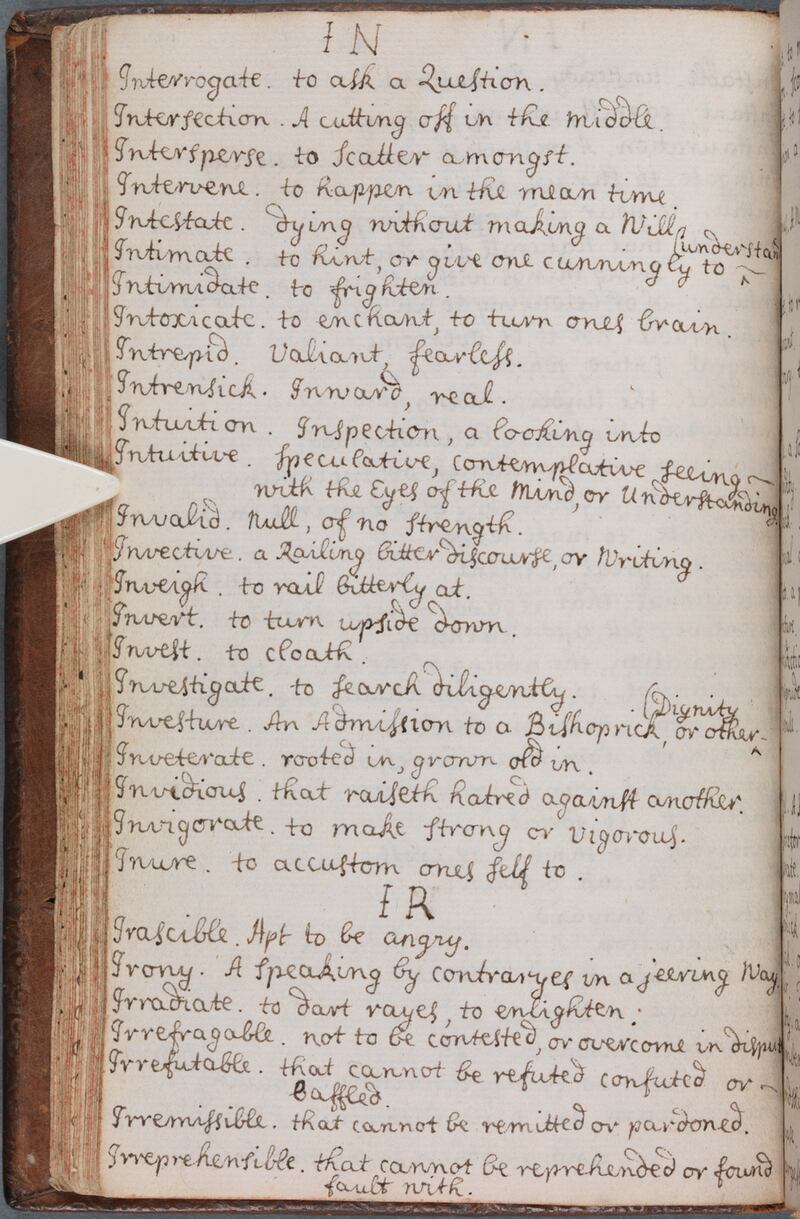 IN
Interrogate. to ask a Question.
Intersection. A cutting off in the middle.
Intersperse. to scatter amongst.
Intervene. to happen in the mean time.
Intestate. dying without making a Will,
(understand
Intimate. to hint, or give one cunningly to ^
Intimidate. to frighten.
Intoxicate. to enchant, to turn ones brain.
Intrepid. Valiant, fearless.
Intrensick. Inward, real.
Intuition. Inspection, a looking into
Intuitive. speculative, contemplative seeing ~
with the Eyes of the Mind, or Understanding
Invalid. Null, of no strength.
Invective. a Railing bitter discourse, or Writing.
Inveigh. to rail bitterly at.
Invert. to turn upside down.
Invest. to cloath.
Investigate. to search diligently.
(Dignity
Investure. An Admission to a Bishoprick, or other-^
Inveterate. rooted in, grown old in.
Invidious. that raiseth hatred against another.
Invigorate. to make strong or vigorous.
Inure. to accustom ones self to.
IR
Irascible. Apt to be angry.
Irony. A speaking by contraryes in a jeering Way
Irradiate. to dart rayes, to enlighten.
Irrefragable. not to be contested, or overcome in disput
Irrefutable. that cannot be refuted confuted or ~
Baffled.
Irremissible. that cannot be remitted or pardoned.
Irreprehensible. that cannot be reprehended or found
fault with.